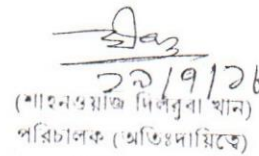 ২৯/৭/১৮
(শাহনওয়াজ দিলরুবা খান)
পরিচালক (অতিঃদায়িত্বে)